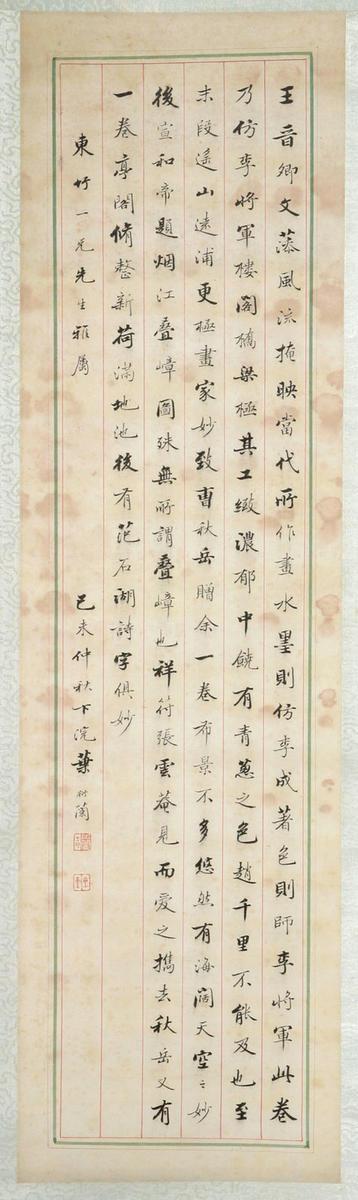 王晉卿文藻風流掩映當代所作畫水墨則仿李成著色則師李將軍此卷
乃仿李將軍樓閣橋梁極其工緻濃郁中饒有青蔥之色趙千里不能及也至
末段遙山遠浦更極畫家妙致曹秋岳贈余一卷布景不多悠然有海闊天空之妙
後宣和帝題烟江疊嶂圖殊無所謂疊嶂也祥符張雲菴見而愛之攜去秋岳又有
一卷亭閣脩整新荷滿地池後有范石湖詩字俱妙
東竹一兄先生雅屬
己未仲秋下浣葉衍蘭